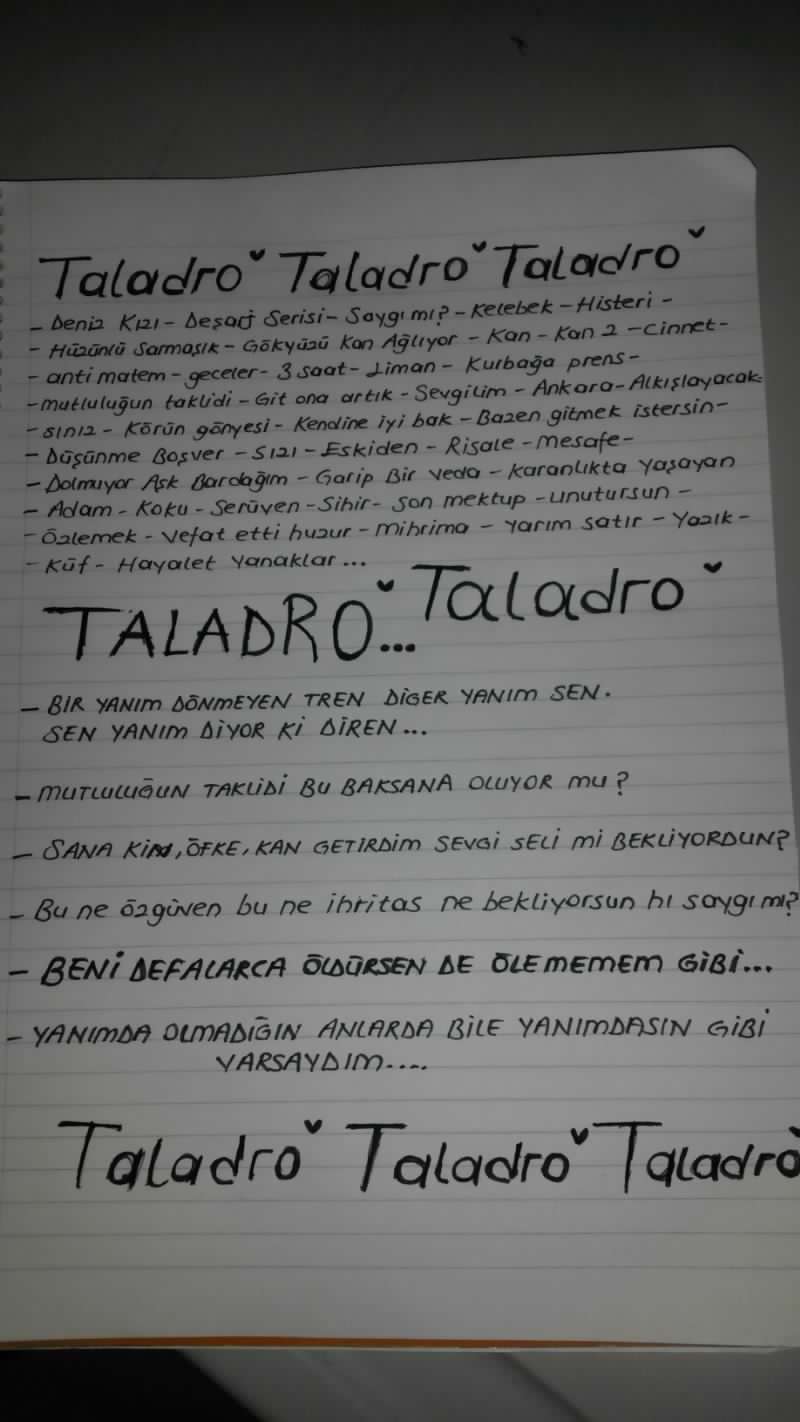 Taladro Taladro Taladro
- Deniz Kızı - Deşarj Serisi - Saygı mı? - Kelebek - Histeri -
- Hüzünlü Sarmaşık - Gökyüzü Kan Ağlıyor - Kan - Kan 2 - Cinnet -
- anti matem - geceler - 3 saat - Liman - Kurbağa prens -
- mutluluğun taklidi - Git ona artık - Sevgilim - Ankara - Alkışlayacak-
- sınız - Körün gönyesi - Kendine iyi bak - Bazen gitmek istersin -
- Düşünme Boşver - Sızı - Eskiden - Risale - Mesafe -
- Dolmuyor Aşk Bardağım - Garip Bir Veda - Karanlıkta Yaşayan
- Adam - Koku - Serüven - Sihir - Son mektup - unutursun -
- Özlemek - Vefat etti huzur - Mihrima - Yarım satır - Yazık -
- Küf - Hayalet Yanaklar...
TALADRO... Taladro
- BİR YANIM DÖNMEYEN TREN DİGER YANIM SEN.
SEN YANIM DİYOR Kİ DİREN...
- MUTLULUĞUN TAKLİDİ BU BAKSANA OLUYOR MU?
- SANA KİN, ÖFKE, KAN GETİRDİM SEVGİ SELİ Mİ BEKLİYORDUN?
- Bu ne özgüven bu ne ihritas ne bekliyorsun hı saygı mı?
- BENİ DEFALARCA ÖLDÜRSEN DE ÖLEMEMEM GİBİ...
- YANIMDA OLMADIĞIN ANLARDA BİLE YANIMDASIN GİBİ
VARSAYDIM....
Taladro Taladro Taladro